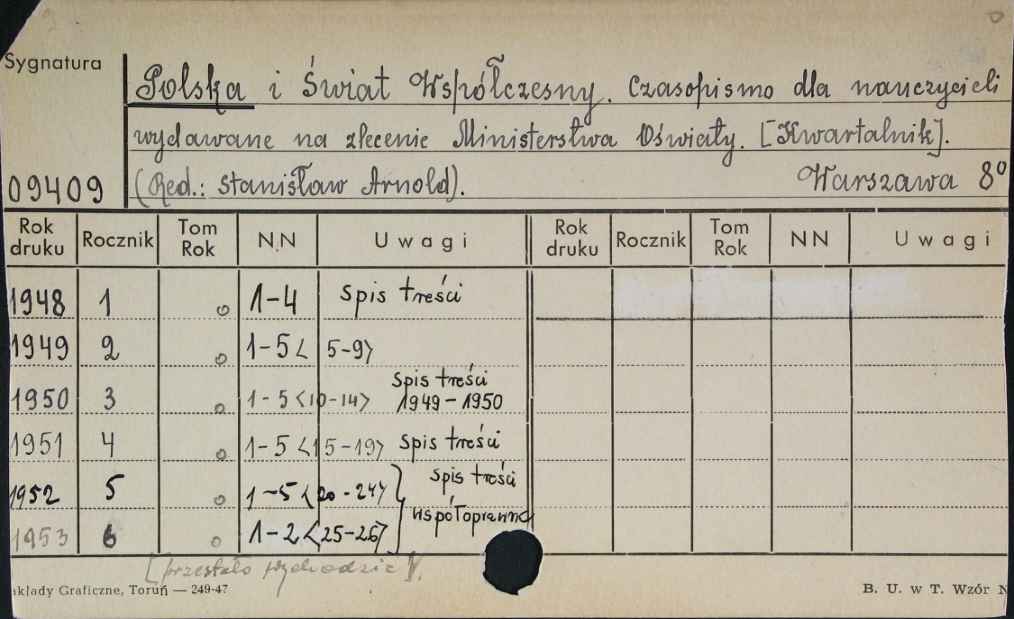 Sygnatura
Polska i Świat Współczesny. Czasopismo dla nauczycieli
wydawane na zlecenie Ministerstwa Oświaty. [Kwartalnik].
09409 (Red.: Stanisław Arnold). Warszawa 8º
Rok druku Rocznik Tom Rok N.N Uwagi Rok druku Rocznik Tom Rok NN Uwagi
1948 1 0 1-4 Spis treści
1949 2 0 1-5 < 5-9>
1950 3 0 1-5 <10-14> Spis treści 1949-1950
1951 4 0 1-5 <15-19> Spis treści
1952 5 0 1-5 <20-24> } Spis treści
1953 6 0 1-2 <25-26> } współoprawne
[przestało wychodzić].
akłady Graficzne, Toruń — 249-47 B. U. w T. Wzór N